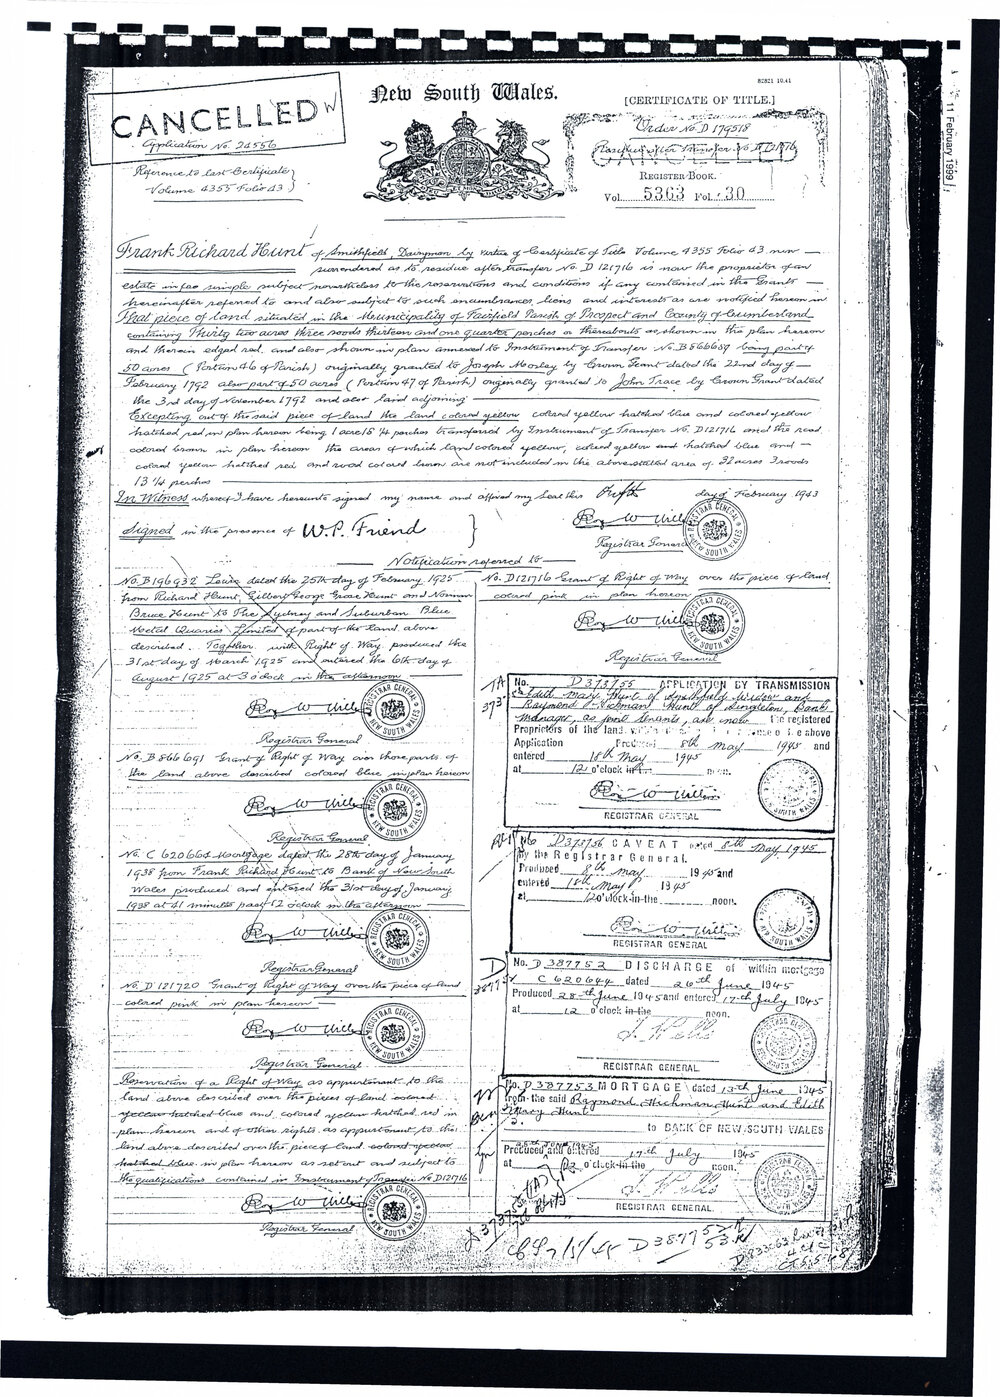 82821 10.41
New South Wales.
[CERTIFICATE OF TITLE.]
CANCELLED
Application No. 24556
Reference to last Certificate
Volume 4355 Folio 43
Order No. D 179518
CANCELLED
REGISTER BOOK.
Vol. 5363 Fol. 30
11 February 1999
Frank Richard Hunt of Smithfield, Dairyman by virtue of Certificate of Title Volume 4355 Folio 43 now
surrendered as to residue after transfer No. D 121716 is now the proprietor of an
estate in fee simple subject nevertheless to the reservations and conditions if any contained in the Grants
hereinafter referred to and also subject to such encumbrances liens and interests as are notified hereon in
That piece of land situated in the Municipality of Fairfield Parish of Prospect and County of Cumberland
containing Thirty two acres three roods thirteen and one quarter perches or thereabouts as shown in the plan hereon
and therein edged red, and also shown in plan annexed to Instrument of Transfer No. B866687 being part of
50 acres (Portion 46 of Parish) originally granted to Joseph Morley by Crown Grant dated the 22nd day of
February 1792 also part of 50 acres (Portion 47 of Parish) originally granted to John Trace by Crown Grant dated
the 3rd day of November 1792 and also land adjoining
Excepting out of the said piece of land the land colored yellow colored yellow hatched blue and colored yellow
hatched red in plan hereon being 1 acre 15 ¼ perches transferred by Instrument of Transfer No. D121716 and the road
colored brown in plan hereon the areas of which land colored yellow, colored yellow and hatched blue and
colored yellow hatched red and road colored brown are not included in the abovestated area of 32 acres 3 roods
13 ¼ perches
In Witness whereof I have hereunto signed my name and affixed my Seal this Fifth day of February 1943
Signed in the presence of W.P. Friend
Registrar General
Notification referred to
No. B196932 Lease dated the 25th day of February 1925
from Richard Hunt, Gilbert George Grose Hunt and Norman
Bruce Hunt to The Sydney and Suburban Blue
Metal Quarries Limited of part of the land above
described. Together with Right of Way produced the
31st day of March 1925 and entered the 6th day of
August 1925 at 3 o'clock in the afternoon
Registrar General
No. B866691 Grant of Right of Way over those parts of
the land above described colored blue in plan hereon
Registrar General
No. C 620664 Mortgage dated the 28th day of January
1938 from Frank Richard Hunt to Bank of New South
Wales produced and entered the 31st day of January
1938 at 41 minutes past 12 o'clock in the afternoon
Registrar General
No. D 121720 Grant of Right of Way over the piece of land
colored pink in plan hereon
Registrar General
Reservation of a Right of Way as appurtenant to the
land above described over the pieces of land colored
yellow hatched blue and colored yellow hatched red in
plan hereon and of other rights as appurtenant to the
land above described over the piece of land colored yellow
hatched blue in plan hereon as set out and subject to
the qualifications contained in Instrument of Transfer No. D121716
Registrar General
No. D121716 Grant of Right of Way over the piece of land
colored pink in plan hereon
Registrar General
No. D373755 APPLICATION BY TRANSMISSION
Edith Mary Hunt of Smithfield Widow and
Raymond Hickman Hunt of Singleton, Bank
Manager, as joint tenants, are now the registered
Proprietors of the land
Application Produced 8th May 1945 and
entered 18th May 1945
at 12 o'clock in noon.
REGISTRAR GENERAL
No D373756 CAVEAT dated 8th May, 1945
by the Registrar General.
Produced 8th May 1945 and
entered 18th May 1945
at 12 o'clock in the noon.
REGISTRAR GENERAL
No. D 387752 DISCHARGE of within mortgage
C 620644 dated 26th June 1945
Produced 28th June 1945 and entered 17th July 1945
at 12 o'clock in the noon.
J. Wells
REGISTRAR GENERAL.
No. D 387753 MORTGAGE dated 13th June 1945
from the said Raymond Hickman Hunt and Edith
Mary Hunt
to BANK OF NEW SOUTH WALES
Produced and entered 17th July 1945
at 12 o'clock in the noon.
J. Wells
REGISTRAR GENERAL.
D 387752
53